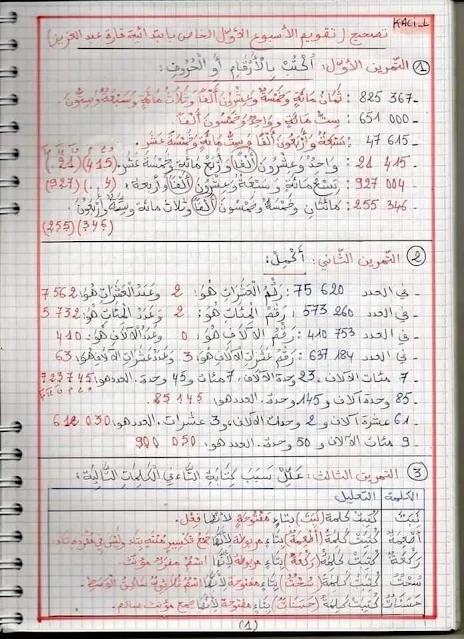 KACI_L
تصحيح (تقويم الأسبوع الأول الخاص بابتدائية قارة عبد العزيز)
① التمرين الأول: أكتب بالأرقام أو الحروف:
- 825 367: ثمان مائة وخمسة وعشرون ألفا وثلاث مائة وسبعة وستون.
- 651 000: ست مائة وواحد وخمسون ألفا.
- 47 615: سبعة وأربعون ألفا وست مائة وخمسة عشر.
- 21 415: واحد وعشرون ألفا وأربع مائة وخمسة عشر. (415) (21)
- 927 004: تسع مائة وسبعة وعشرون ألفا وأربعة: (927)
- 255 346: مائتان وخمسة وخمسون ألفا وثلاث مائة وستة وأربعون.
(346) (255)
② التمرين الثاني: أكمل:
- في العدد 75 620: رقم العشرات هو: 2 وعدد العشرات هو: 7562
- في العدد 573 260: رقم المئات هو: 2 وعدد المئات هو: 5732
- في العدد 410 753: رقم الآلاف هو: 0 وعدد الآلاف هو: 410
- في العدد 637 184: رقم عشرات الآلاف هو: 3 وعدد عشرات الآلاف هو: 63
- 7 مئات الآلاف، 23 وحدة الآلاف، 7 مئات و 45 وحدة. العدد هو: 723745
- 85 وحدة آلاف و 145 وحدة. العدد هو: 85 145.
- 61 عشرة آلاف و 2 وحدات الآلاف، و 3 عشرات. العدد هو: 612 030
- 9 مئات الآلاف و 50 وحدة. العدد هو: 900 050
③ التمرين الثالث: علل سبب كتابة التاء في الكلمات التالية:
الكلمة التعليل
كتبت كلمة بتاء مفتوحة لأنها فعل.
أطعمة كتبت كلمة (أطعمة) بتاء مربوطة لأنها جمع تكسير
ركعة كتبت كلمة (ركعة) بتاء مربوطة لأنها اسم مفرد مؤنث.
كتبت كلمة بتاء مفتوحة لأنها اسم ثلاثي ساكن الوسط.
حسنات كتبت كلمة (حسنات) بتاء مفتوحة لأنها جمع مؤنث سالم.
(1)